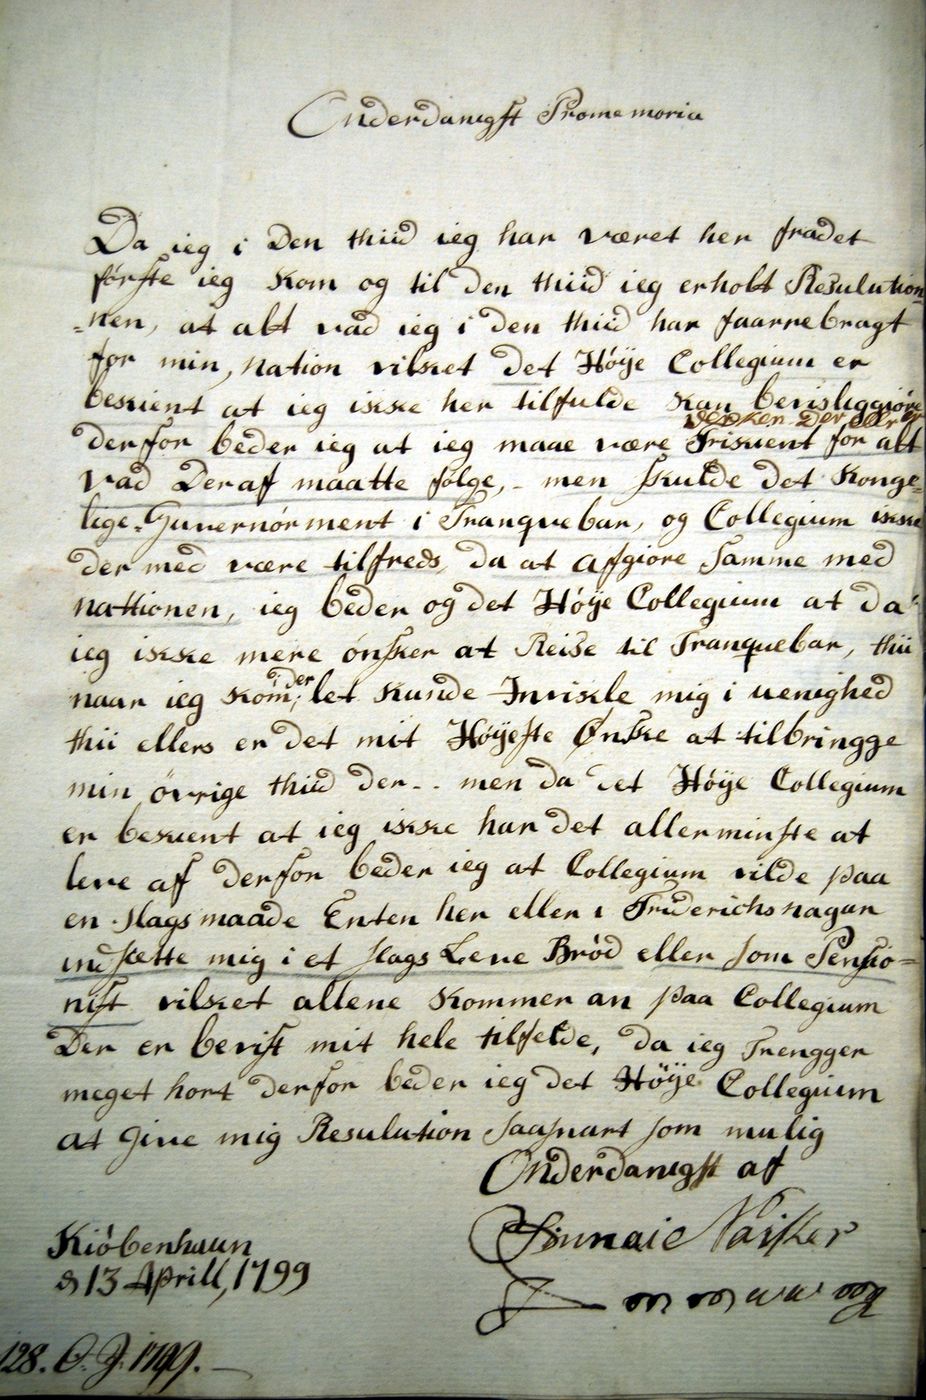 Onderdanigst Promemoria
Da ieg i Den thiid ieg har været her fradet
förste ieg kom og til den thiid ieg erholt Resulution=
=nen, at alt vad ieg i den thiid har faarrebragt
for min, nation vilket det Höÿe Collegium er
bekient at ieg ikke her tilfulde kan bevisliggiöre
derfor beder ieg at ieg maae være Friskient for alt
vad Deraf maatte fölge, - men skulde det Konge=
lige=Guvernörment i Tranquebar, og Collegium ikke
der med være tilfreds, da at afgiöre samme med
nattionen, ieg beder og det Höÿe Collegium at da
ieg ikke mere önsker at Reise til Tranquebar, thii
naar ieg kom, der let kunde Invikle mig i uenighed
thii ellers er det mit Höÿeste Önske at tilbringge
min övrige thiid der - - men da det Höÿe Collegium
er bekient at ieg ikke har det allerminste at
leve af derfor beder ieg at Collegium vilde paa
en slags maade Enten her eller i Friderichsnagur
indsætte mig i et slags Leve Bröd eller som Pensio=
nist vilket allene kommer an paa Collegium
Der er bevist mit hele tilfelde, da ieg Trengger
meget hort derfor beder ieg det Höÿe Collegium
at give mig Resulution saasnart som mulig
Onderdanigst af
Naiker
Kiöbenhaun
d 13 Aprill, 1799
128. O. J. 1799. -